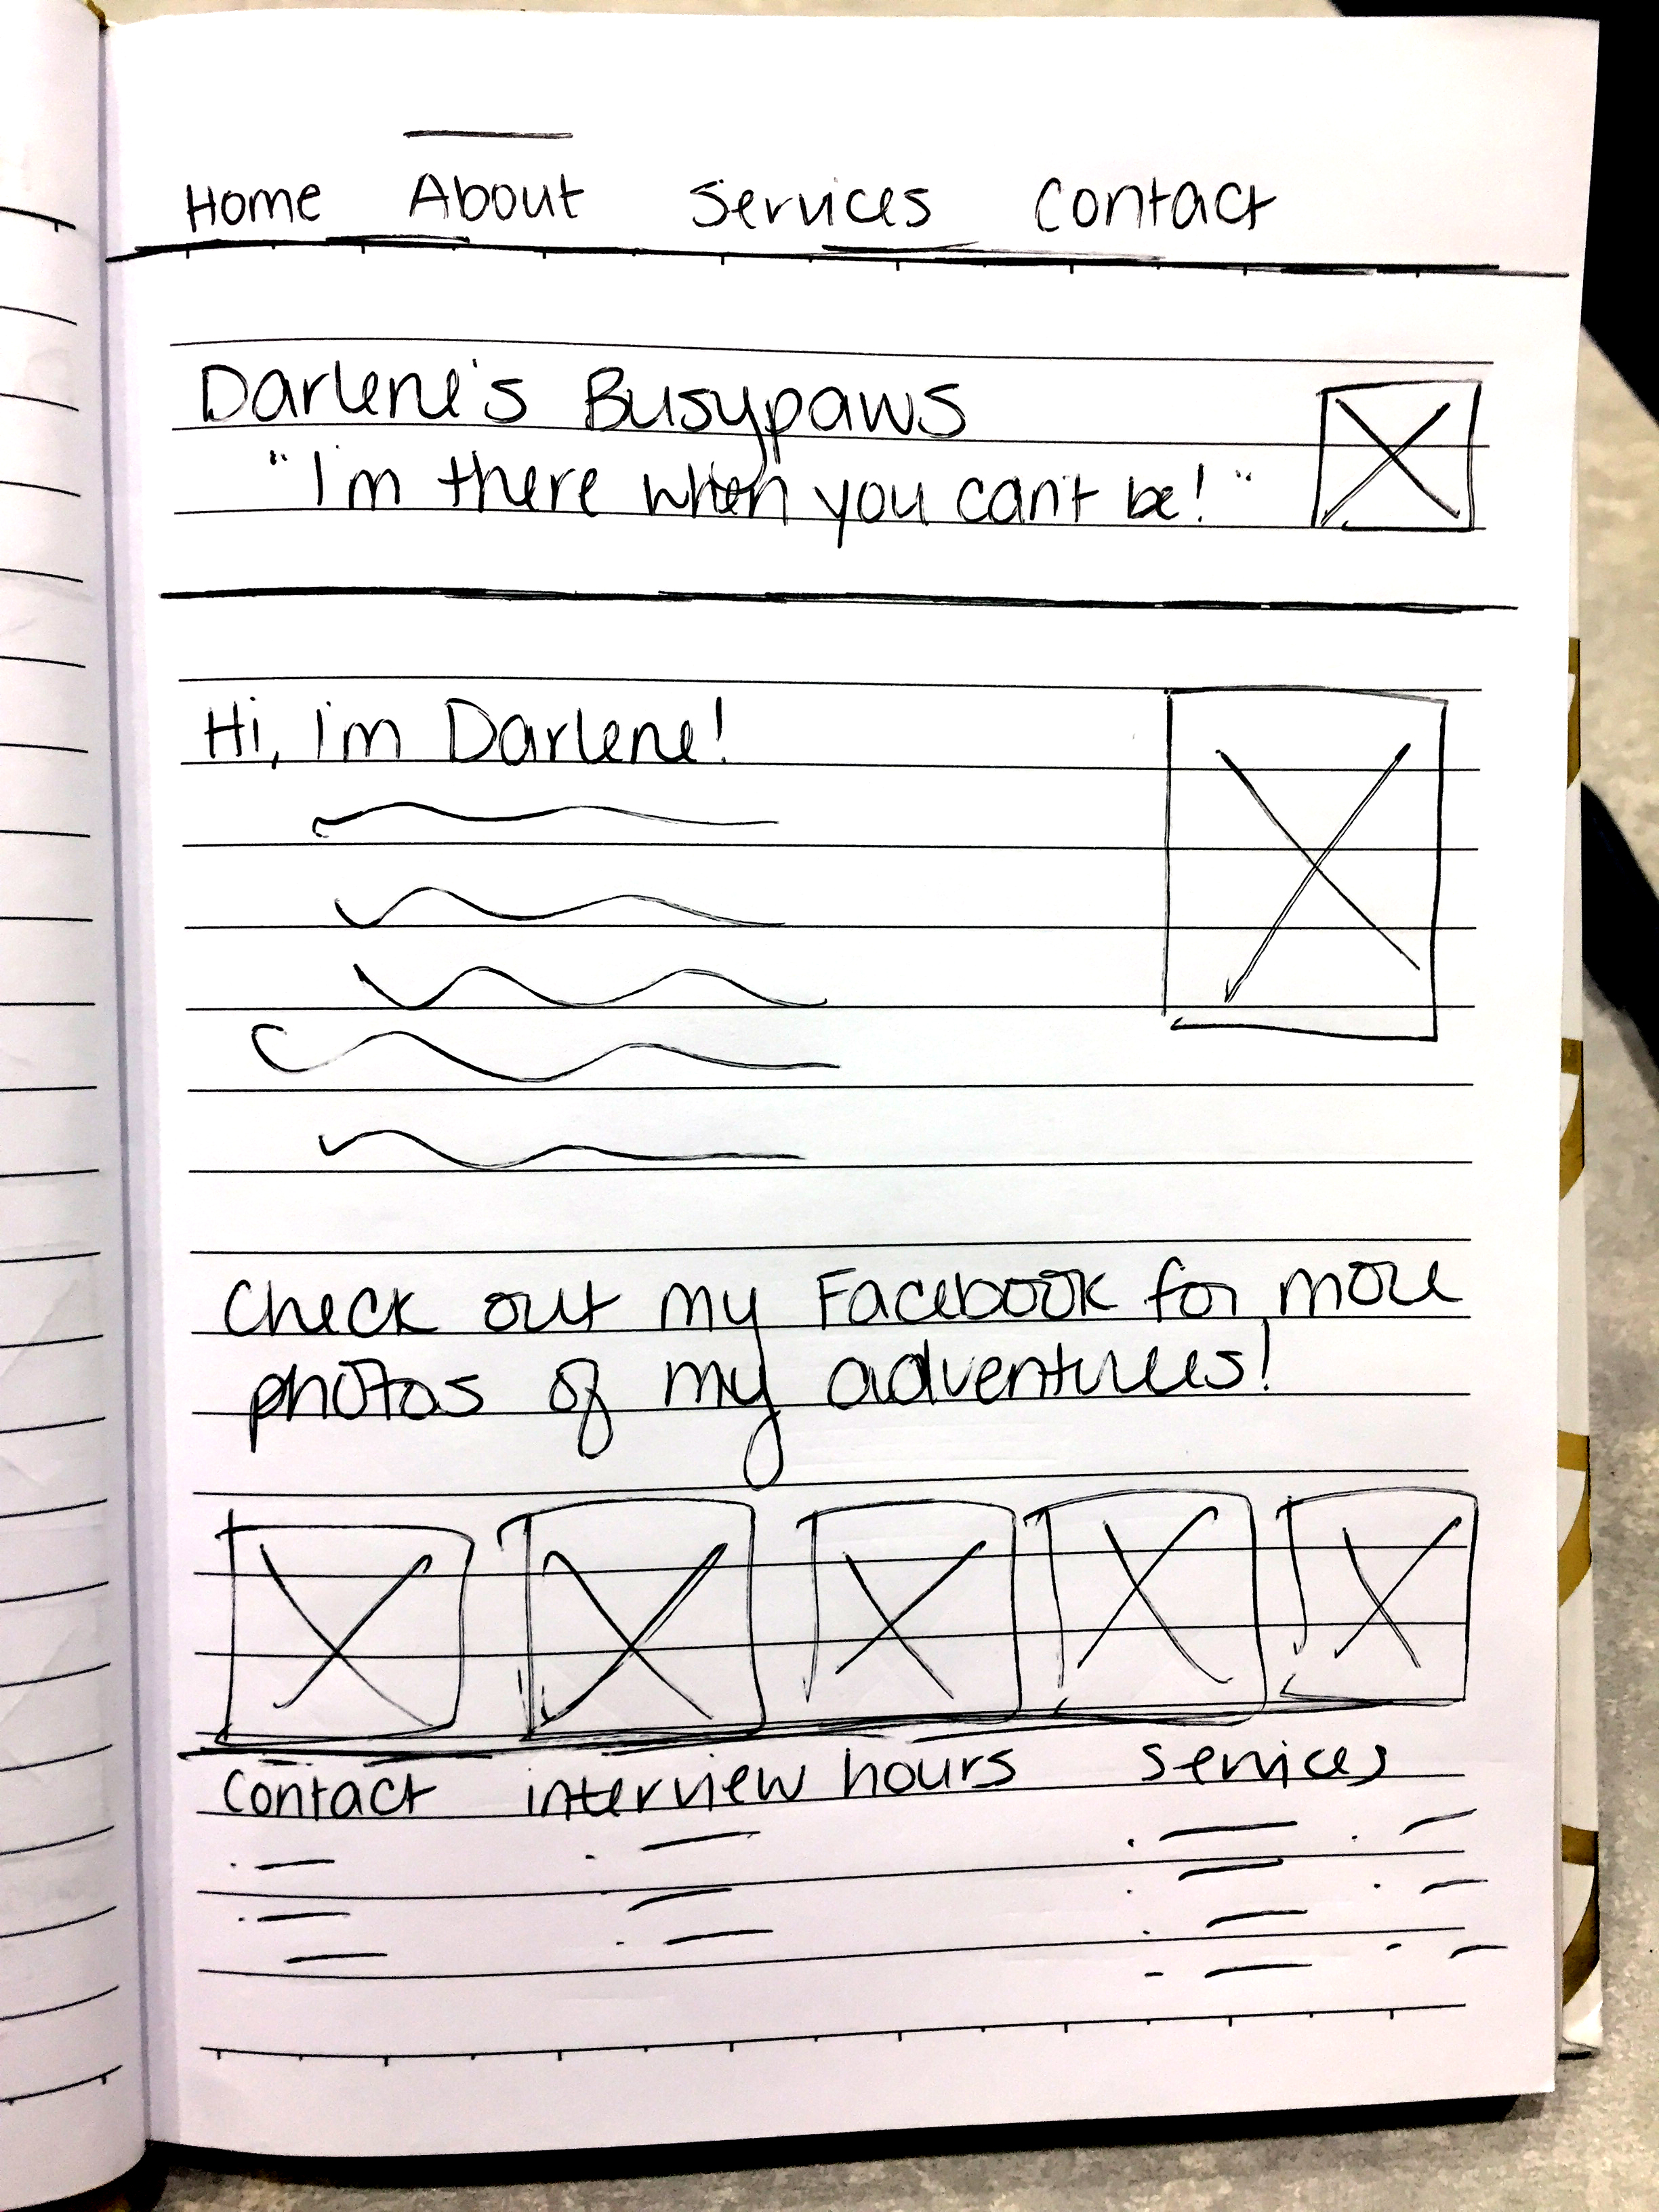 Home About Services Contact
Darlene's Busypaws
"I'm there when you can't be!"
Hi, i'm Darlene!
Check out my Facebook for more
photos of my adventures!
Contact interview hours services